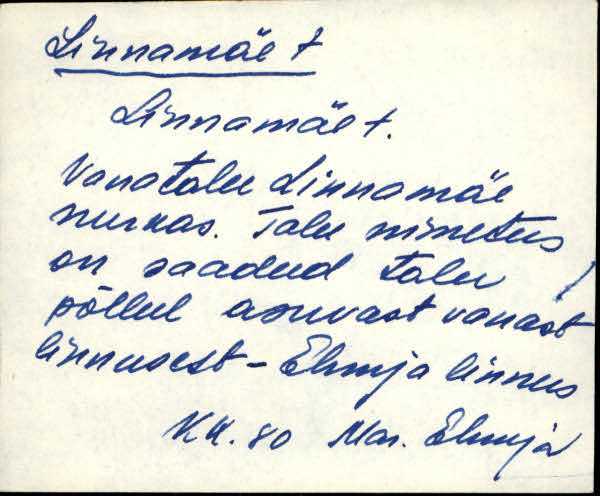 Linnamäe t
Linnamäe t.
Vanatalu Linnamäe
nurkas. Talu nimetus
on saadud talu
põllul asuvast vanast
linnusest - Ehmja linnus
KK. 80 Mar. Ehmja